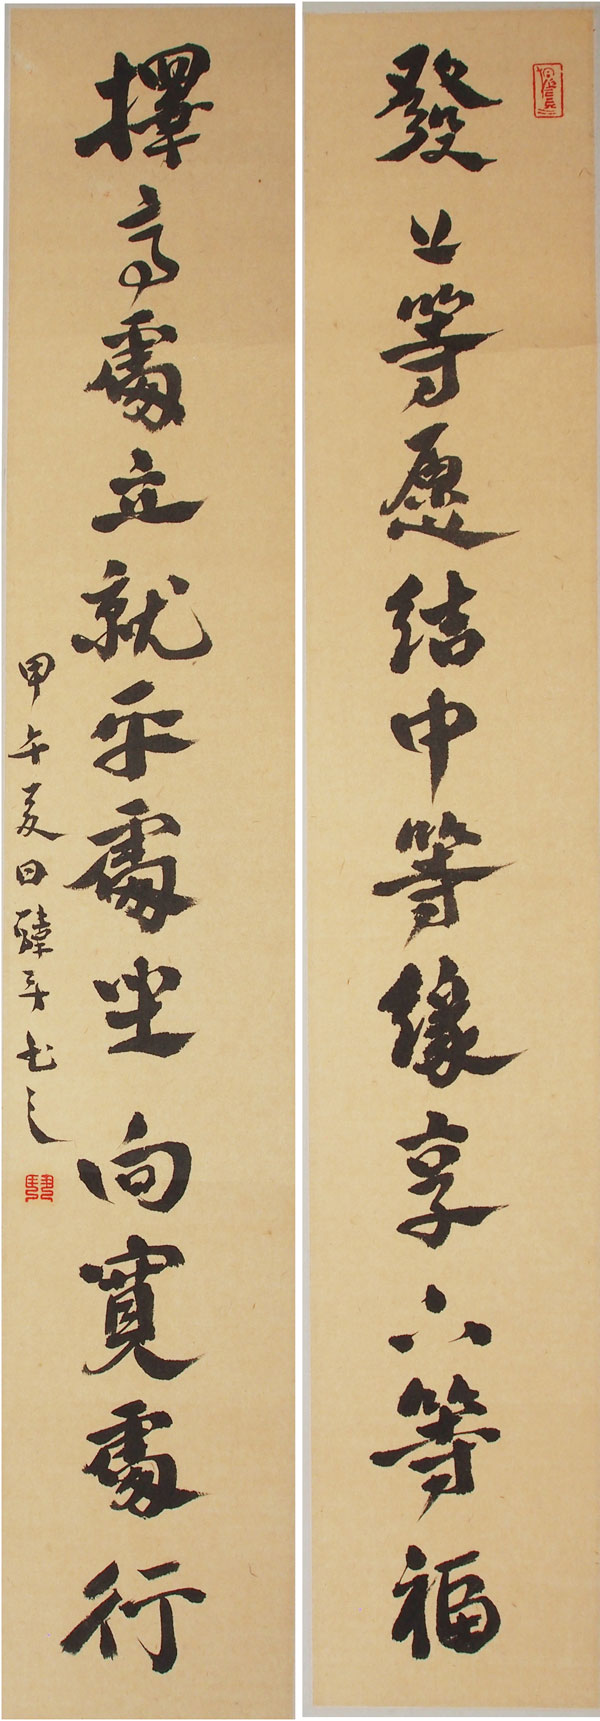 發上等愿結中等緣享下等福
擇高處立就平處坐向寬處行
甲午夏日书之